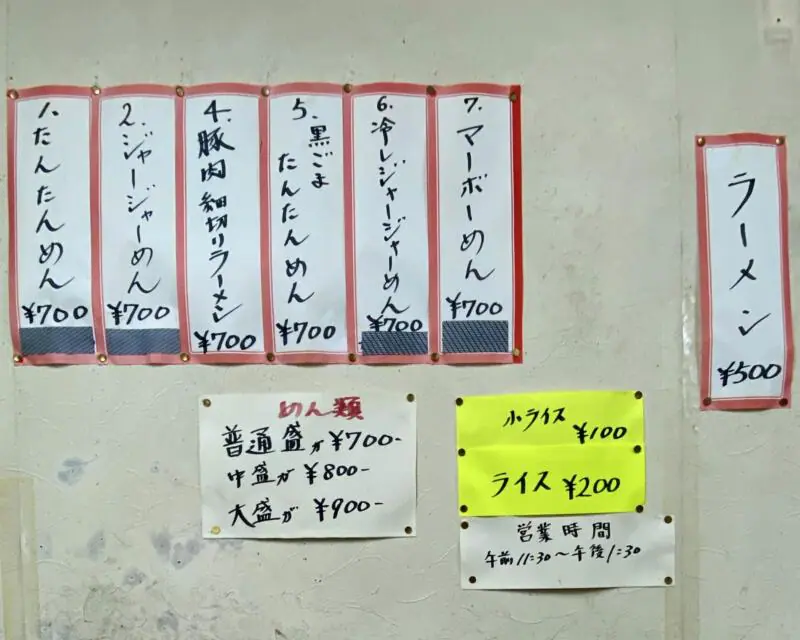 1. たんたんめん ¥700
2. ジャージャーめん ¥700
4. 豚肉細切りラーメン ¥700
5. 黒ごま
たんたんめん ¥700
6. 冷しジャージャーめん ¥700
7. マーボーめん ¥700
ラーメン ¥500
めん類
普通盛が¥700-
中盛が ¥800-
大盛が ¥900-
小ライス ¥100
ライス ¥200
営業時間
午前11:30〜午後1:30